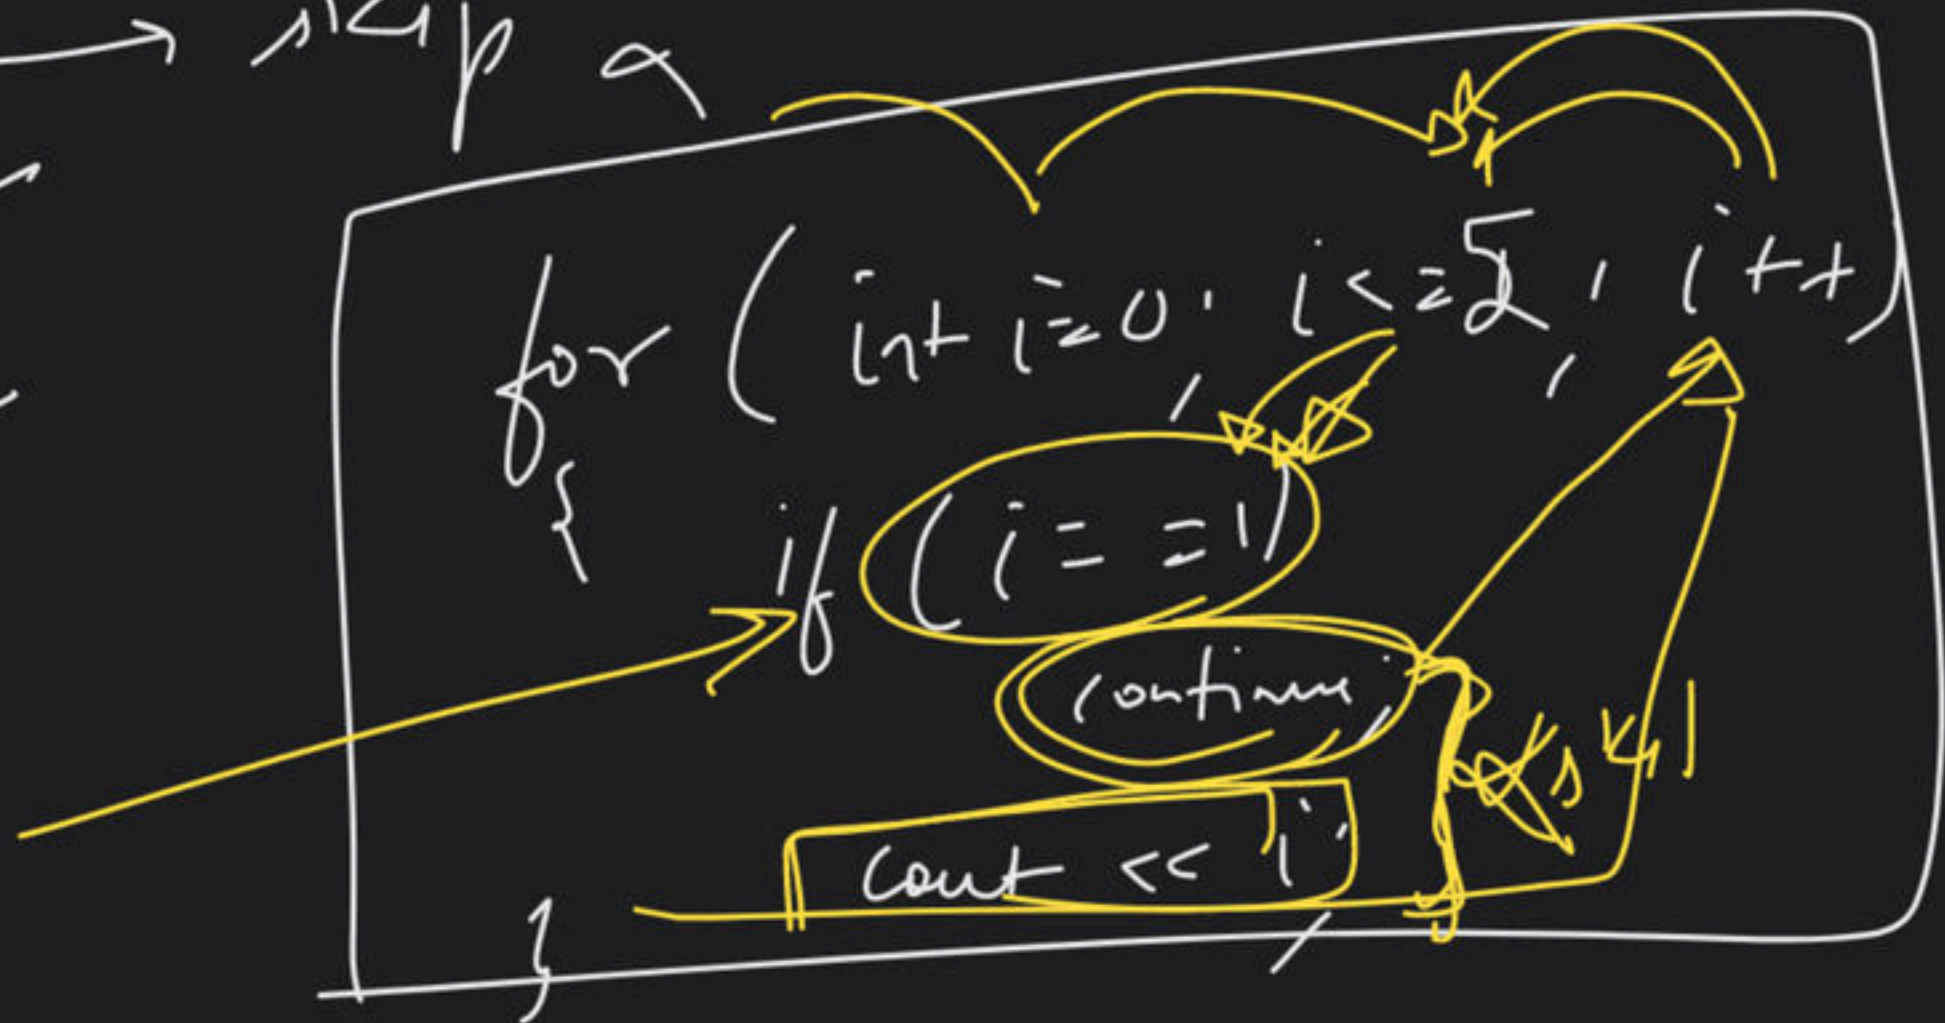 → skip a
for ( int i=0; i<=5; i++)
{
if (i==1)
continue;
cout << i;
}